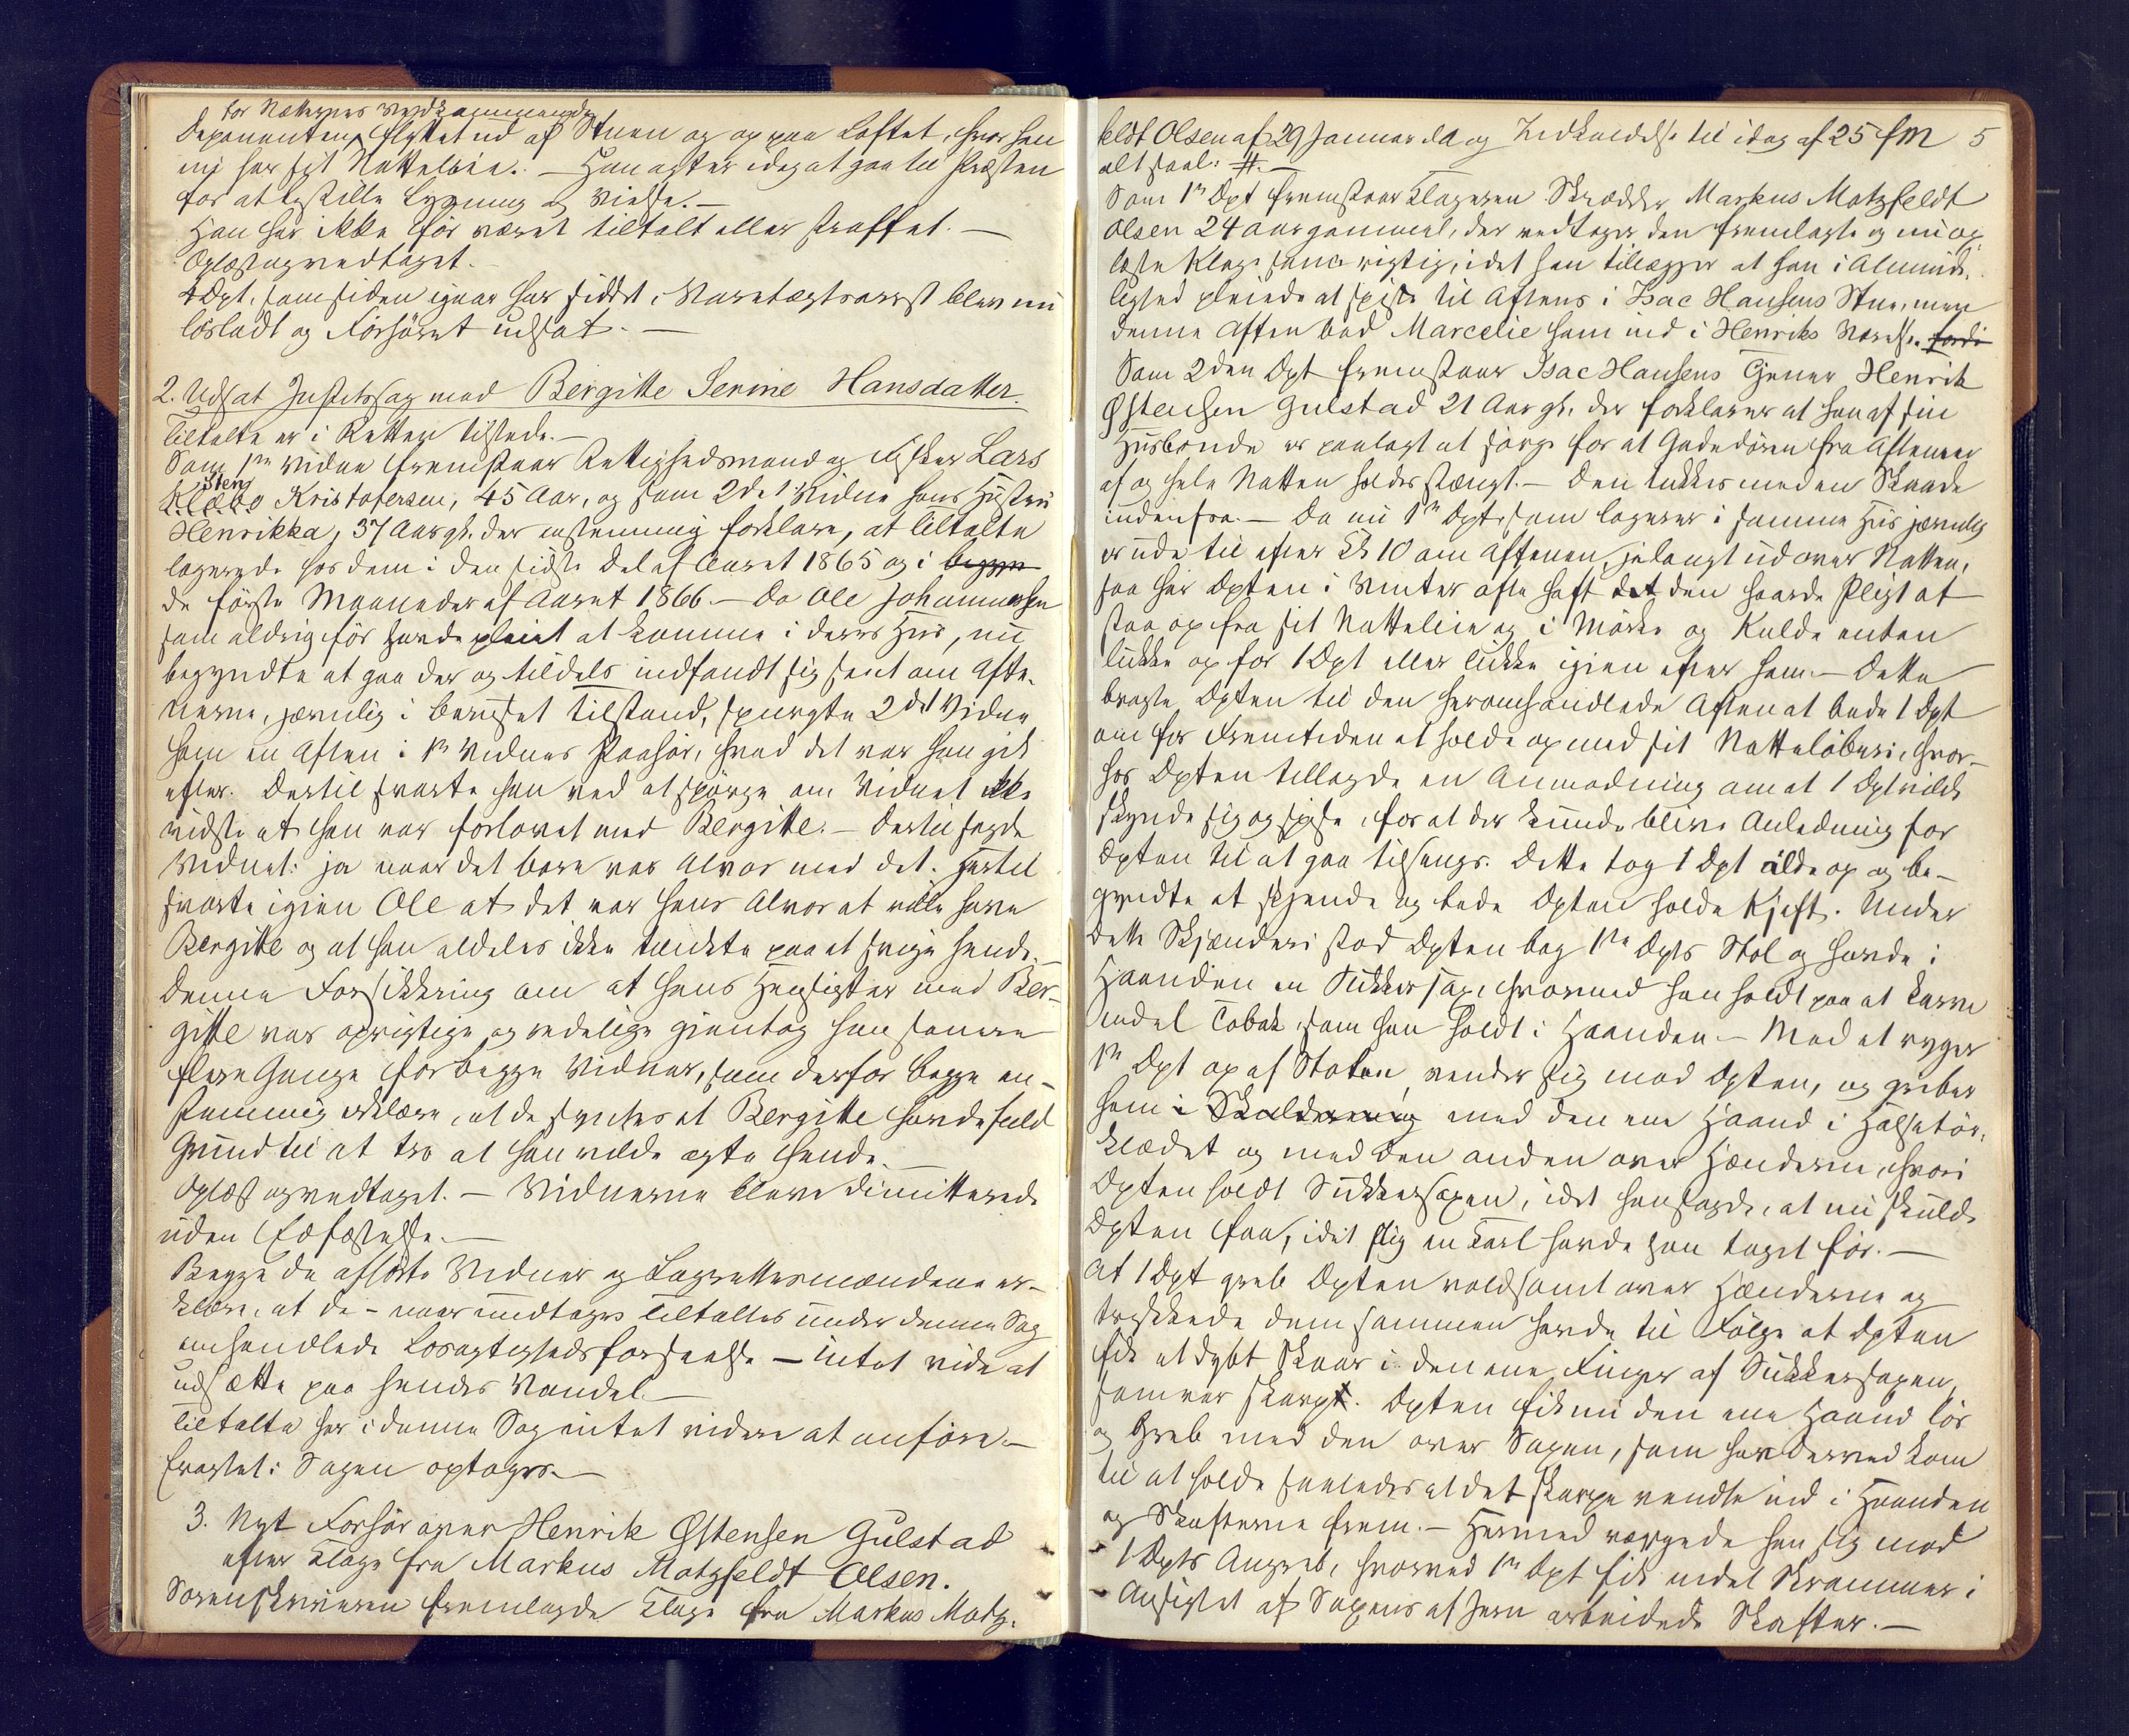 for Natternes Vedkommende
Deponenten flyttet ud af Stuen og op paa Loftet, hvor han
nu har sit Natteleie. — Han agter idag at gaa til Præsten
for at bestille Lysning og Vielse. —
Han har ikke før været tiltalt eller straffet. —
Oplæst og vedtaget. —
4 Dpt. som siden igaar har siddet i Varetægtsarrest blev nu
løsladt og Forhøret udsat. —
2. Udsat Justitssag mod Bergitte Serine Hansdatter.
Tiltalte er i Retten tilstede. —
Som 1ste Vidne fremstaar Rettighedsmand og Fisker Lars
Sten
Klæbo Kristofersen, 45 Aar, og som 2det Vidne hans Hustru
Henrikka, 37 Aar gl. der enstemmig forklare, at Tiltalte
logerede hos dem i den sidste Del af Aaret 1865 og i begyn
de første Maaneder af Aaret 1866. — Da Ole Johannessen
som aldrig før havde pleiet at komme i deres Hus, nu
begyndte at gaa der og tildels indfandt sig sent om Afte-
nerne, jævnlig i beruset Tilstand, spurgte 2det Vidne
ham en Aften i 1ste Vidnes Paahør, hvad det var han gik
efter. Dertil svarte han ved at spørge om Vidnet ikke
vidste at han var forlovet med Bergitte. — Dertil sagde
Vidnet: ja naar det bare var Alvor med det. Hertil
svarte igien Ole at det var hans Alvor at ville have
Bergitte og at han aldeles ikke tænkte paa at svige hende. —
Denne Forsikkring om at hans Hensigter med Ber-
gitte var oprigtige og redelige gientog han senere
flere Gange for begge Vidner, som derfor begge en-
stemmig erklære, at de syntes at Bergitte havde fuld
Grund til at tro at han vilde ægte hende. —
Oplæst og vedtaget. — Vidnerne bleve dimitterede
uden Edfæstelse. —
Begge de afhørte Vidner og Lagrettesmændene er-
klære, at de – naar undtages Tiltaltes under denne Sag
omhandlede Løsagtighedsforseelse – intet vide at
udsætte paa hendes Vandel. —
Tiltalte har i denne Sag intet videre at anføre. —
Eragtet: Sagen optages. —
3. Nyt Forhør over Henrik Østensen Gulstad
efter Klage fra Markus Motzfeldt Olsen.
Sorenskriveren fremlagde Klage fra Markus Motz-
feldt Olsen af 29 Januar d.A. og Indkaldelse til idag af 25 f M 5
alt saal: #. —
Som 1ste Dpt fremstaar Klageren Skrædder Markus Motzfeldt
Olsen 24 Aar gammel, der vedtager den fremlagte og nu op-
læste Klage som rigtig, idet han tillægger at han i Alminde-
lighed pleiede at spise til Aftens i Isac Hansens Stue, men
denne Aften bad Marcelie ham ind i Henriks Værelse. fordi
Som 2den Dpt fremstaar Isac Hansens Tjener Henrik
Østensen Gulstad 21 Aar gl. der forklarer at han af sin
Husbonde er paalagt at sørge for at Gadedøren fra Aftenen
af og hele Natten holdes stængt. — Den lukkes med en Skaade
indenfra. — Da nu 1ste Dpt. som logerer i samme Hus jævnlig
er ude til efter Kl 10 om Aftenen, ja langt ud over Natten,
saa har Dpten i Vinter ofte haft det den haarde Pligt at
staa op fra sit Natteleie og i Mørke og Kulde enten
lukke op for 1 Dpt eller lukke igien efter ham. — Dette
bragte Dpten til den heromhandlede Aften at bede 1 Dpt
om for Fremtiden at holde op med sit Natteløberi, hvor-
hos Dpten tillagde en Anmodning om at 1 Dpt vilde
skynde sig og spise, for at der kunde blive Anledning for
Dpten til at gaa tilsengs. Dette tog 1 Dpt ilde op og be-
gyndte at skjende og bede Dpten holde Kjeft. Under
dette Skjænderi stod Dpten bag 1ste Dpts Stol og havde i
Haanden en Sukkersax, hvormed han holdt paa at karve
endel Tobak, som han holdt i Haanden. — Med et ryger
1ste Dpt op af Stolen, vender sig mod Dpten, og griber
ham i med den ene Haand i Halstør-
klædet og med den anden over Hænderne, hvori
Dpten holdt Sukkersaxen, idet han sagde, at nu skulde
Dpten faa, idet slig en Karl havde han taget før. —
At 1 Dpt greb Dpten voldsomt over Hænderne og
trykkede dem sammen havde til Følge at Dpten
fik et dybt Skaar i den ene Finger af Sukkersaxen,
som var skarp. Dpten fik nu den ene Haand løs
og Greb med den over Saxen, som han derved kom
til at holde saaledes at det skarpe vendte ind i Haanden
og Skafterne frem. — Hermed værgede han sig mod
1 Dpts Angreb, hvorved 1ste Dpt fik endel Skrammer i
Ansigtet af Saxens af Jern arbeidede Skafter. —